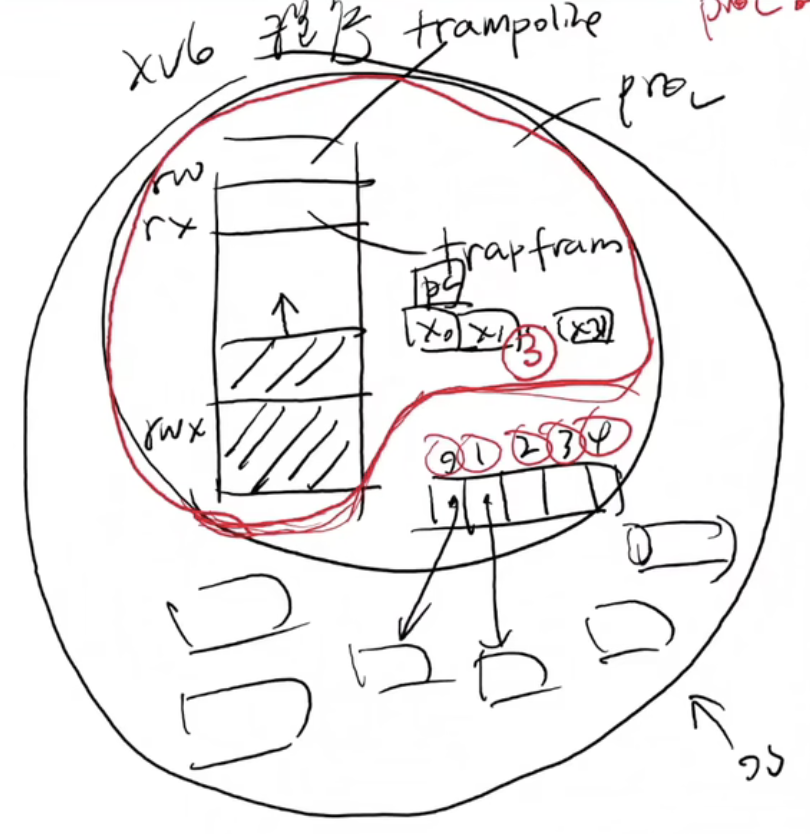 xv6 程序 trampoline
proc
rw
rx
trapfram
pc
x0 x1
3
rwx
0 1 2 3 4
os